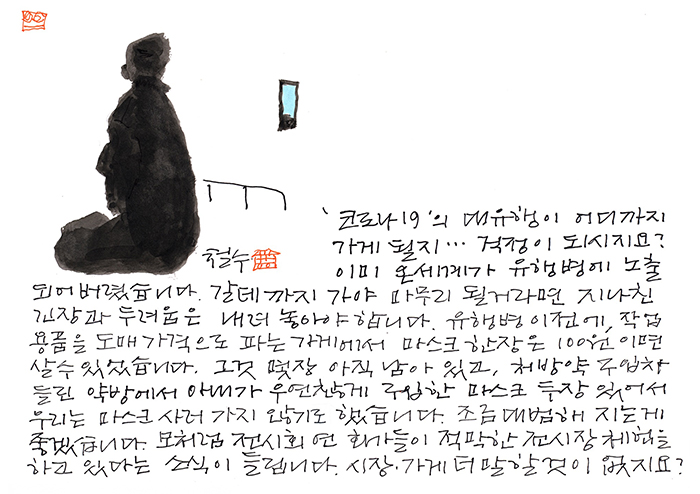 철수
'코로나19'의 대유행이 어디까지
가게 될지… 걱정이 되시지요?
이미 온세계가 유행병에 노출
되어버렸습니다. 갈데까지 가야 마무리 될거라면 지나친
긴장과 두려움은 내려 놓아야 합니다. 유행병 이전에, 작업
용품을 도매가격으로 파는 가게에서 마스크 한장은 100원이면
살수 있었습니다. 그것 몇장 아직 남아 있고, 처방약 구입차
들린 약방에서 아내가 우연찮게 구입한 마스크 두장 있어서
우리는 마스크 사러 가지 않기도 했습니다. 조금 대범해 지는게
좋겠습니다. 모처럼 전시회 연 화가들이 적막한 전시장 체험을
하고 있다는 소식이 들립니다. 시장·가게 더 말할것이 없지요?